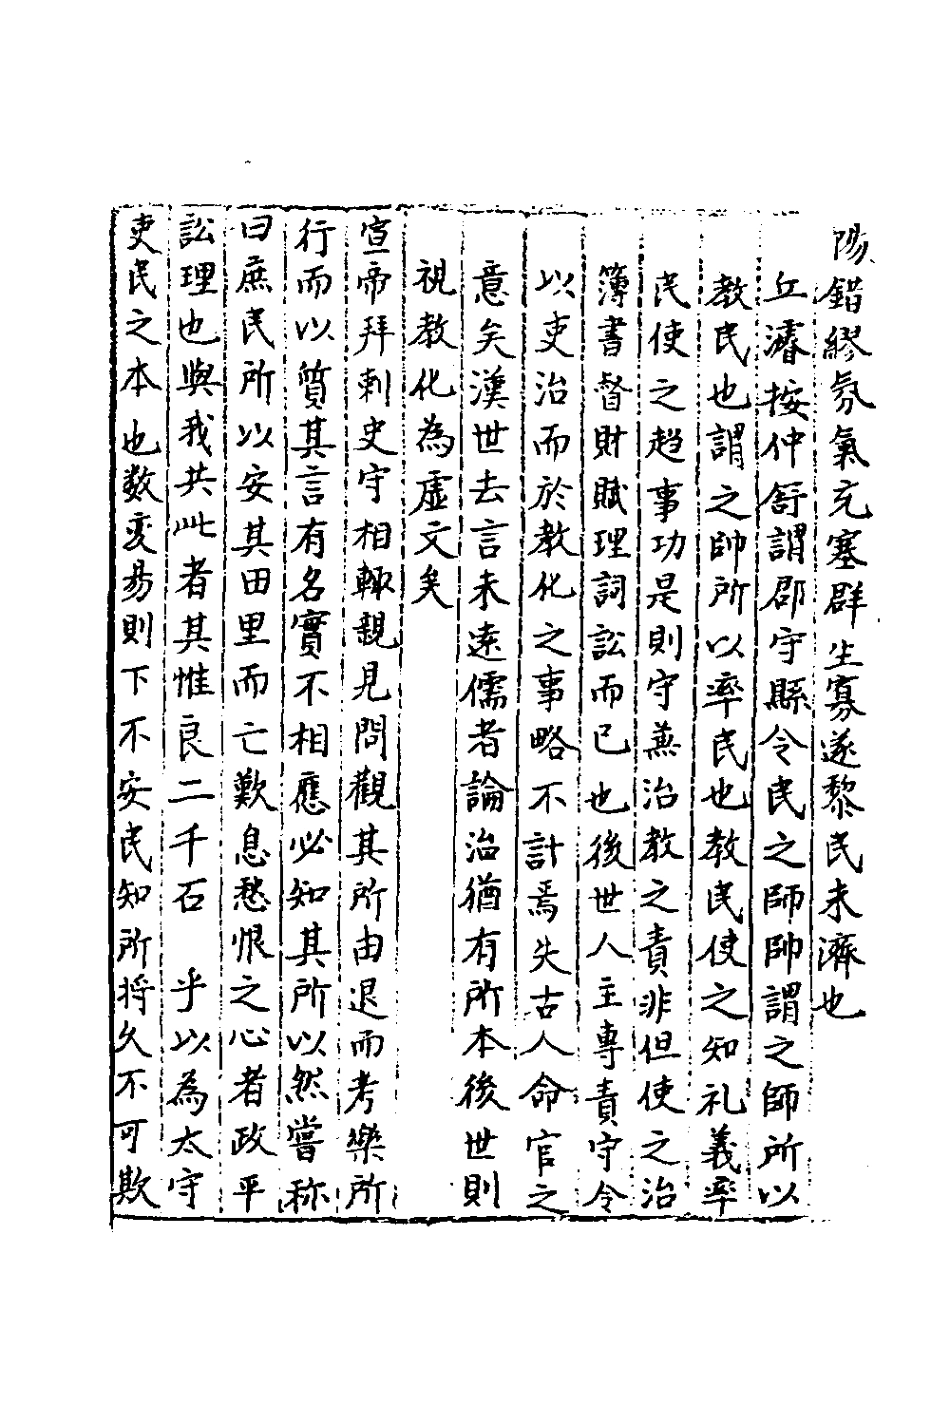 陽錯繆氛氣充塞群生寡遂黎民未濟也
丘濬按仲舒謂郡守縣令民之師帥謂之師所以
教民也謂之帥所以率民也教民使之知礼義率
民使之趋事功是則守蕪治教之責非但使之治
簿書督財賦理詞訟而已也後世人主專責守令
以吏治而於教化之事略不計焉失古人命官之
意矣漢世去言未遠儒者論治猶有所本後世則
視教化為虛文矣
宣帝拜刺史守相輙親見問觀其所由退而考樂所
行而以質其言有名實不相應必知其所以然嘗称
曰庶民所以安其田里而亡歎息愁恨之心者政平
訟理也與我共此者其惟良二千石 乎以為太守
吏民之本也数变易則下不安民知所将久不可欺